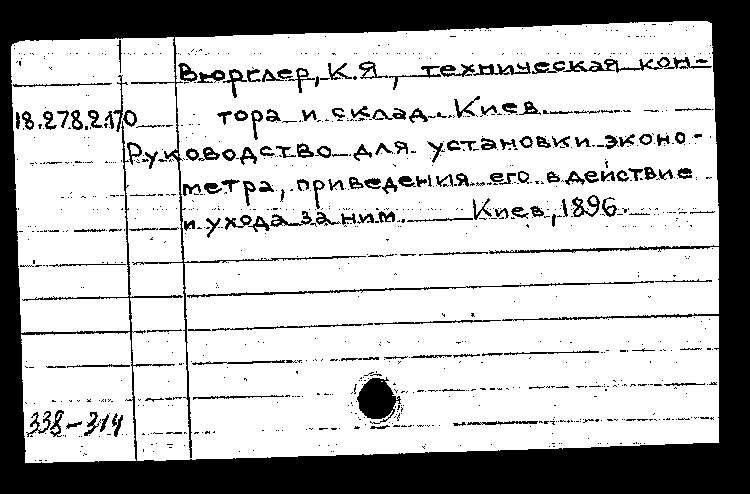 Вюрглер, К.Я, техническая кон-
18.278.2.170 тора и склад. Киев.
Руководство для установки эконо-
метра, приведения его в действие
и ухода за ним. Киев, 1896.
338-314